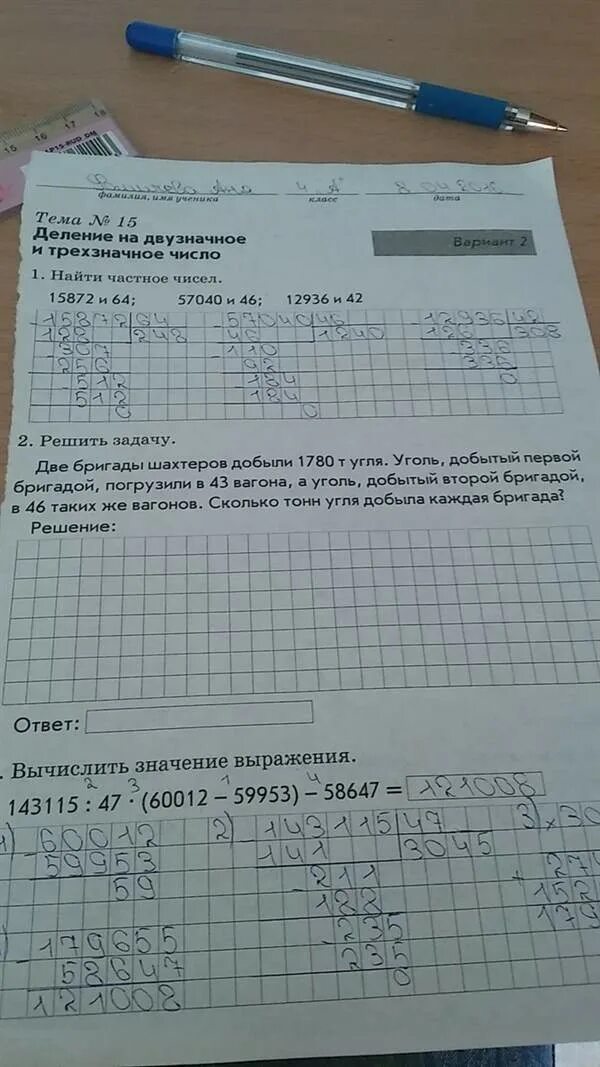 15 16 17 18
4 "А"
фамилия, имя ученика класс дата
Тема № 15
Деление на двузначное
и трехзначное число
Вариант 2
1. Найти частное чисел.
15872 и 64; 57040 и 46; 12936 и 42
15872 64 57040 46 12936 42
128 248 46 1240 126 308
307 110 336
256 92 336
512 184 0
512 184
0 0
2. Решить задачу.
Две бригады шахтеров добыли 1780 т угля. Уголь, добытый первой
бригадой, погрузили в 43 вагона, а уголь, добытый второй бригадой,
в 46 таких же вагонов. Сколько тонн угля добыла каждая бригада?
Решение:
Ответ:
. Вычислить значение выражения.
2 3 1 4
143115 : 47 · (60012 – 59953) – 58647 = 121008
60012 2) 143115 47 3) × 30
59953 141 3045
59 211 + 274
188 152
179655 235 179
58647 235
121008 0